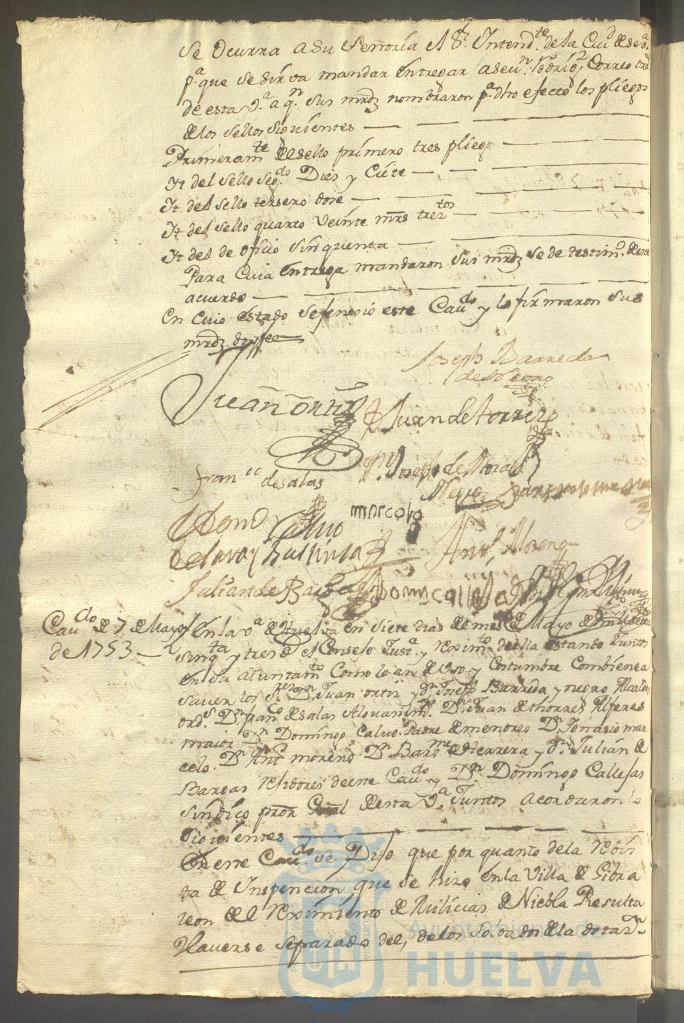 Se Ocurra a su Señoria el Sr. Intendte. de la Ciud. de Seva.
pa. que se sirva mandar entregar a Correo
de esta Va. a qn. sus mrds nombraron pa. dho efecto los pliegos
de los Sellos Siguientes
Primeramte. del sello primero tres pliegos
It del Sello Segdo. Dies y Ciete
It del sello tersero dose
It del sello quarto veinte mrs tretos
It del de oficio sinquenta
Para Cuia entrega mandaron sus mrds se de testimo. de este
acuerdo
En Cuio estado sefenecio este Cavdo. y lo firmaron Sus
mrds doy fee
Joseph Barreda
Juan Ortiz
Juan de torres
Joseph de
Franco. de salas
marcelo
Antto. Moreno
Julian de Bargas
Domo. Callejas
Cavdo. de 7 de Mayo
de 1753
En la va. de Huelva en siete dias del mes de Mayo de mil setes.
sinqta. y tres el Consejo Justa. y reximto. de ella estando Juntos
en su aiuntamto. Como lo an de Uso y Costumbre Combiene a
saver los Sres. Dn. Juan ortiz y dn. Joseph Barreda y negro Alcaldes
ords. Dn. franco. de salas Dn. Juan de thorres Alferes
maior Dn. Domingo Calvo Padre de menores Dn. Ignasio mar
celo Dn. Antto. moreno Dn. de Herrera y Dn. Julian de
Bargas rexidores de este Cavdo. y Dn. Domingo Callejas
sindico pror. Gral de esta Va. Juntos acordaron lo
siguientes
En este Cavdo. se Dijo que por quanto de la rebis
ta de Inspencion que se hizo en la Villa de Gibra
leon del reximiento de Milicias de Niebla Resulta
Haverse separado del, de los Soldados de la dotasn.
Ayuntamiento de
HUELVA